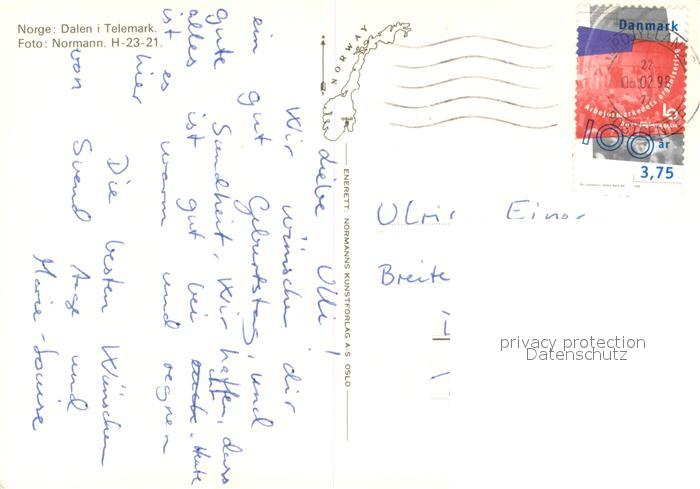 Norge: Dalen i Telemark.
Foto: Normann. H-23-21.
NORWAY
Liebe Ulli!
Wir wünschen dir
ein gut Geburtstag, und
gute Sundheit. Wir haffen, dass
alles ist gut bei euch. Heute
ist es warm und regnen
hier
Die besten Wünschen
von Svend Aage und
Marie-Louise
ENERETT: NORMANNS KUNSTFORLAG A/S OSLO
Danmark
06.02.98
Arbejdsmarkedets organisering
100 år
3,75
Ulri Einer
Breite
privacy protection
Datenschutz